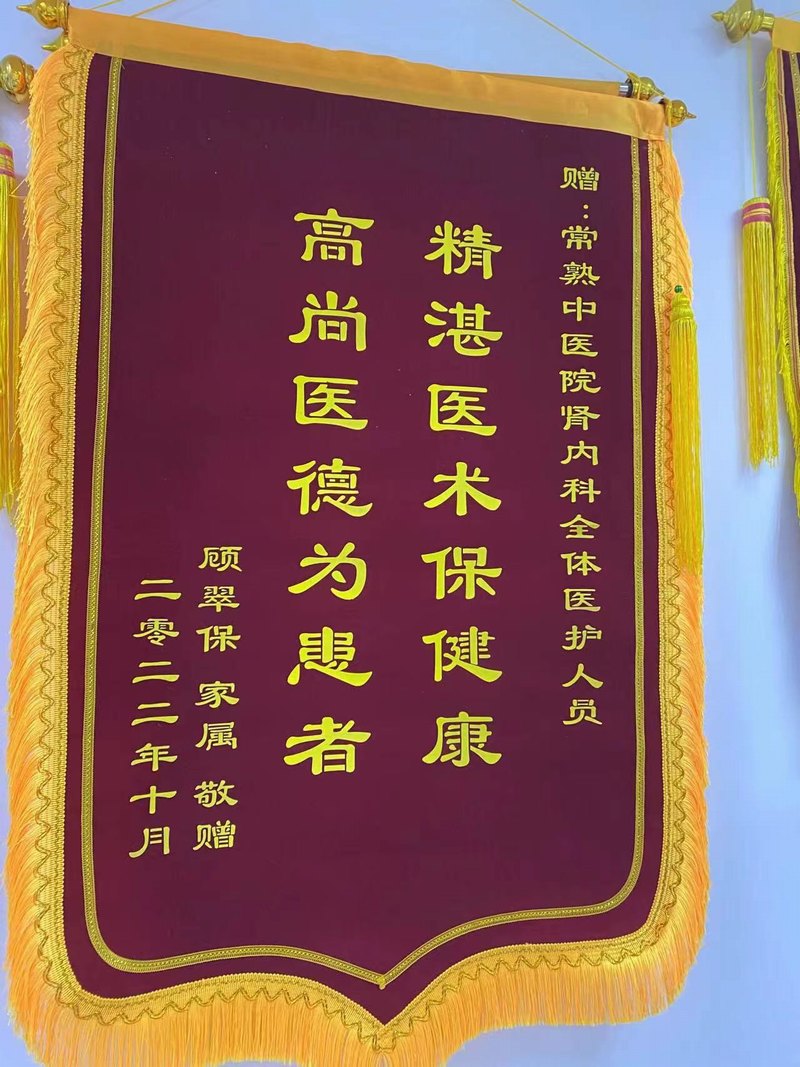 赠：常熟中医院肾内科全体医护人员
精湛医术保健康
高尚医德为患者
顾翠保 家属 敬赠
二零二二年十月